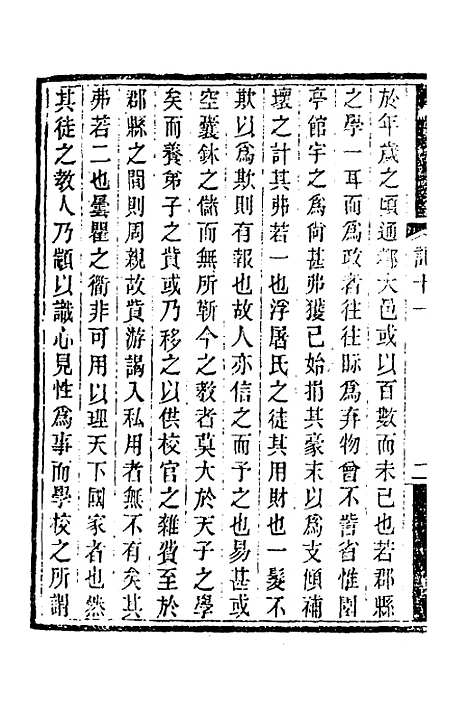 記十一
二
於年歲之頃通都大邑或以百數而未已也若郡縣
之學一耳而為政者往往眎為弃物曾不訾省惟園
亭館宇之為尚甚弗獲已始捐其豪末以為支傾補
壞之計其弗若一也浮屠氏之徒其用財也一髮不
欺以為欺則有報也故人亦信之而予之也易甚或
空囊鉢之儲而無所靳今之教者莫大於天子之學
矣而養弟子之貲或乃移之以供校官之雜費至於
郡縣之間則周親故貲游謁入私用者無不有矣其
弗若二也曇瞿之術非可用以理天下國家者也然
其徒之教人乃顓以識心見性為事而學校之所謂